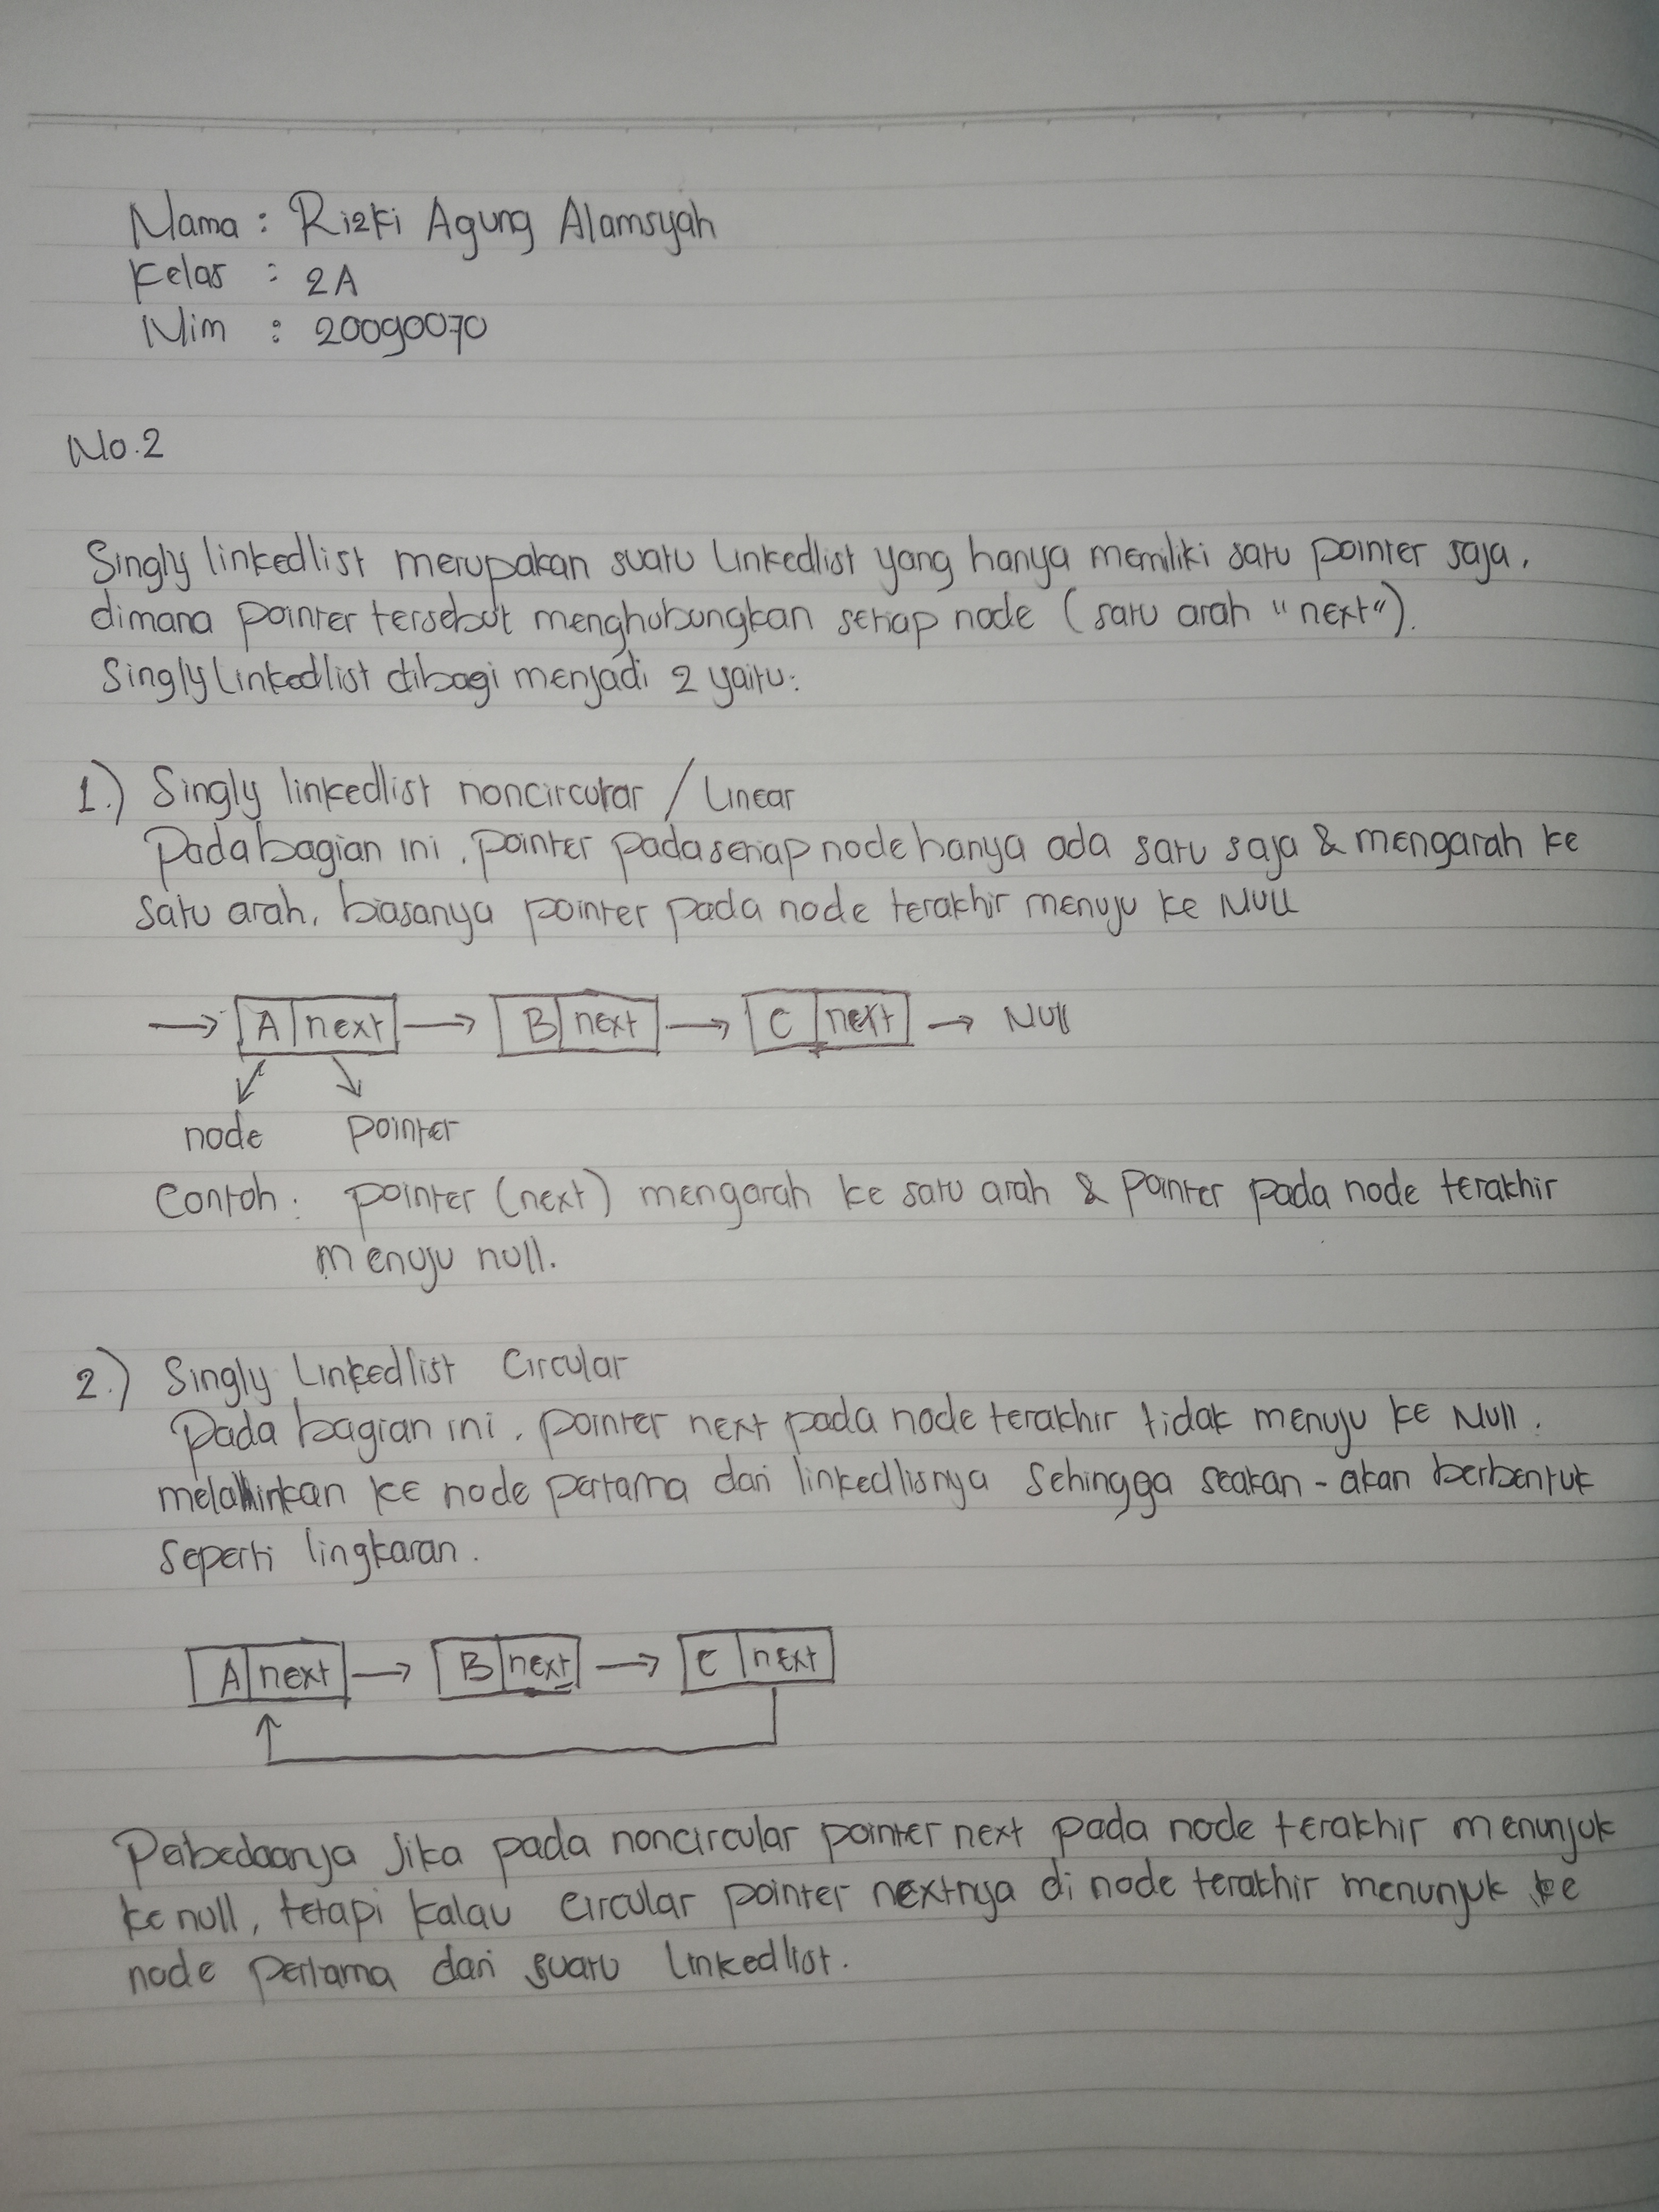 Nama : Rizki Agung Alamsyah
Kelas : 2A
Nim : 20090070
No.2
Singly linkedlist merupakan suatu linkedlist yang hanya memiliki satu pointer saja,
dimana pointer tersebut menghubungkan setiap node (satu arah "next").
Singly linkedlist dibagi menjadi 2 yaitu:
1.) Singly linkedlist noncircular / Linear
Pada bagian ini, pointer pada setiap node hanya ada satu saja & mengarah ke
satu arah, biasanya pointer pada node terakhir menuju ke NULL
A next B next C next Null
node pointer
Contoh : pointer (next) mengarah ke satu arah & pointer pada node terakhir
menuju null.
2.) Singly Linkedlist Circular
Pada bagian ini, pointer next pada node terakhir tidak menuju ke Null.
melainkan ke node pertama dari linkedlisnya sehingga seakan-akan berbentuk
seperti lingkaran.
A next B next C next
Perbedaanya Jika pada noncircular pointer next pada node terakhir menunjuk
ke null, tetapi kalau circular pointer nextnya di node terakhir menunjuk ke
node pertama dari suatu linkedlist.